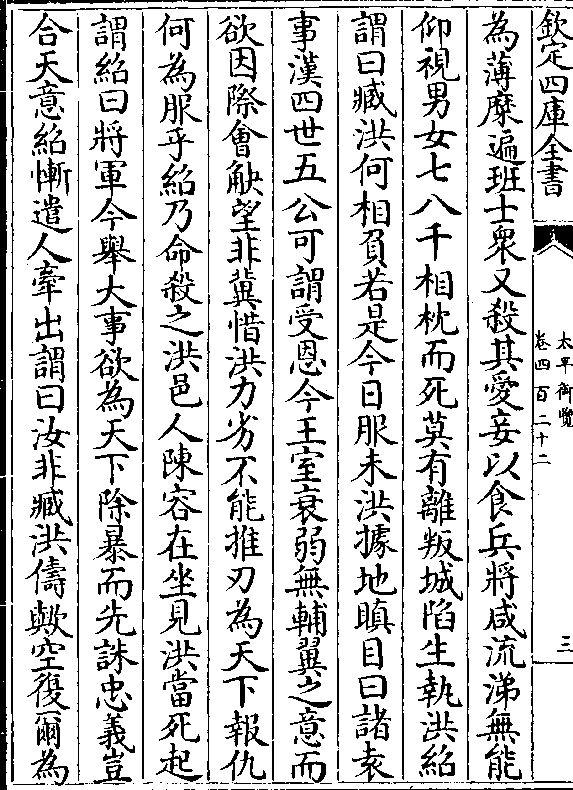 欽定四庫全書
太平御覽
卷四百二十二
三
為薄糜遍班士衆又殺其愛妾以食兵將咸流涕無能
仰視男女七八千相枕而死莫有離叛城陷生執洪紹
謂曰臧洪何相負若是今日服未洪據地瞋目曰諸袁
事漢四世五公可謂受恩今王室衰弱無輔翼之意而
欲因際會觖望非冀惜洪力劣不能推刃為天下報仇
何為服乎紹乃命殺之洪邑人陳容在坐見洪當死起
謂紹曰將軍今舉大事欲為天下除暴而先誅忠義豈
合天意紹慚遣人牽出謂曰汝非臧洪儔歟空復爾為